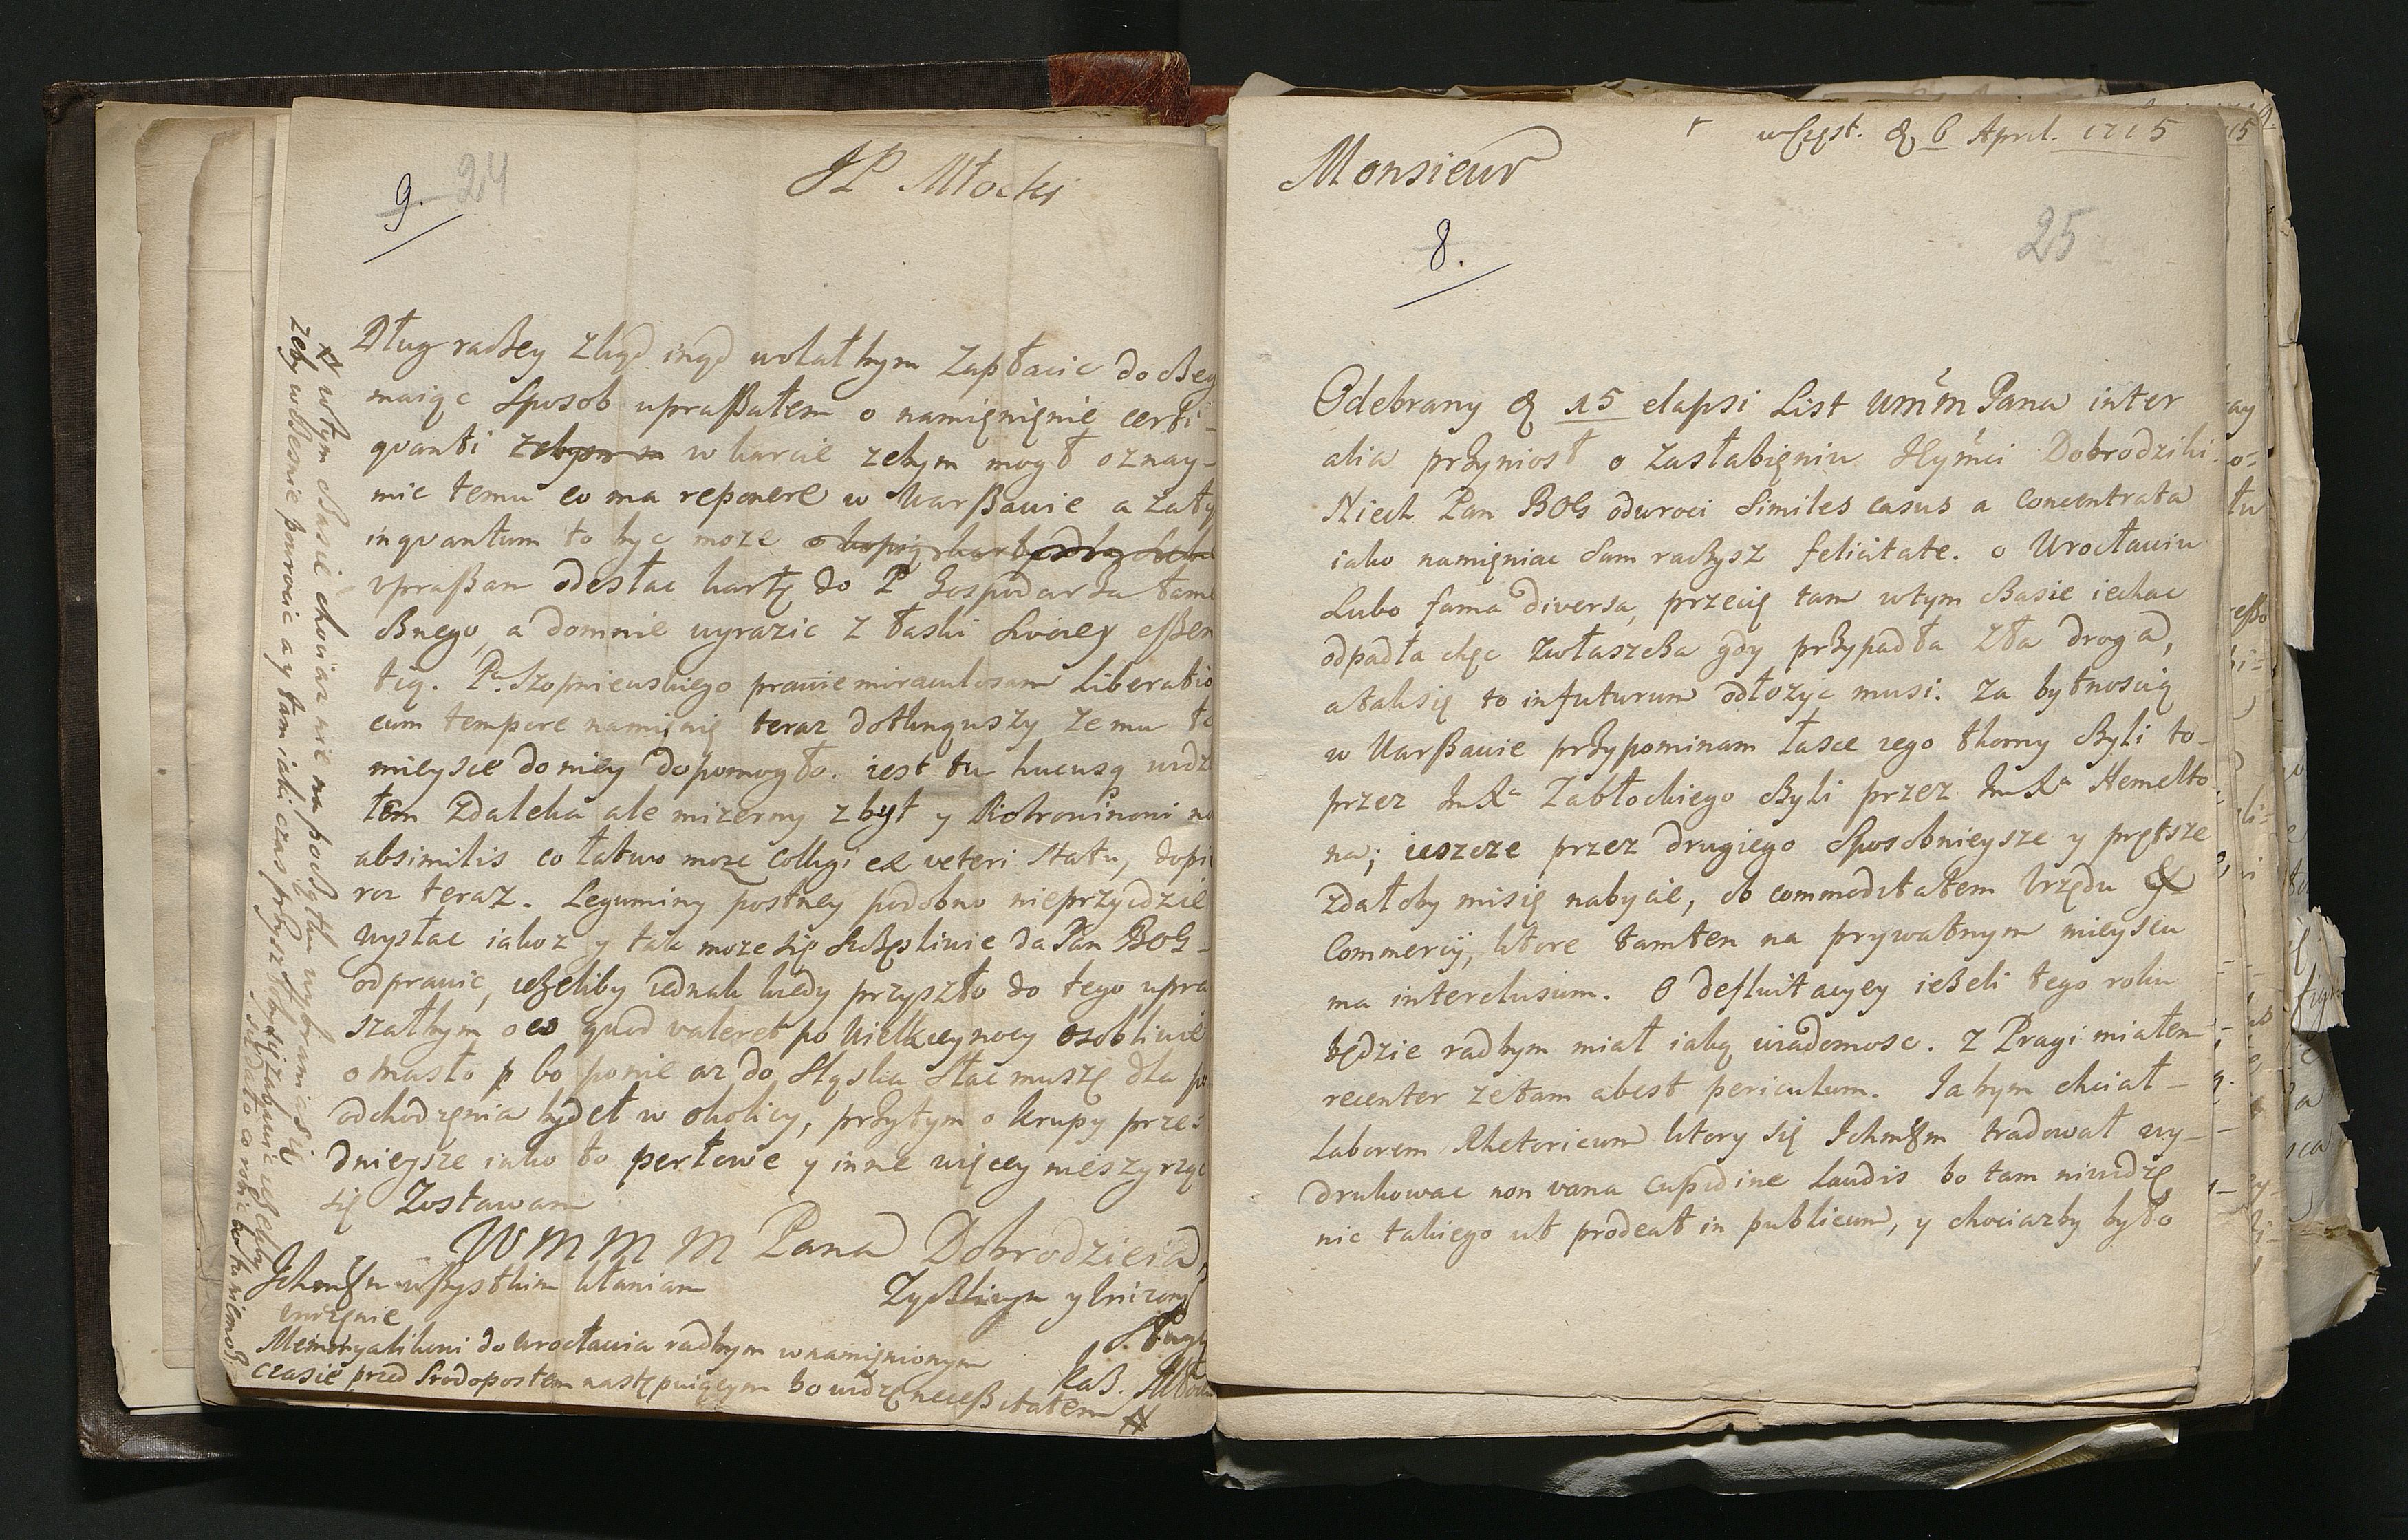 JP Młocki
9. 24
Dług raczey zkąd inąd wolałbym zapłacic do czeg
maiąc sposob upraszałem o namięnięnie certi-
quanti w karcie zebym mogł oznay-
mic temu co ma reponere w Warszawie a zaty
inquantum to byc moze
upraszam odesłac kartę do P Gospodarza tame
cznego, a domnie wyrazic z łaski swoiey essen
tią. Pa Szopniewskiego prawie miraculosam liberatio
cum tempore namięnię teraz dotknąwszy ze mu to
mieysce do niey dopomogło. iest tu hucusq widz
łem zdaleka ale mizerny zbyt y no
absimilis co łatwo moze colligi ex veteri statu, dopi
roz teraz. Leguminy postney podobno nieprzyidzie
wysłac iakoz y tak moze się szczęsliwie da Pan BOG
odprawic, iezeliby iednak kiedy przyszło do tego upra
szałbym oco quod valeret po Wielkieynocy osobliwie
o masło bo ponie az do Sląska słac muszę dla po
odchodzęnia bydeł w okolicy, przytym o krupy prze:
dnieysze iako to perłowe y inne więcy nieszyrząc
się Zostawam
W M M M Pana Dobrodzieia
Zyczliwym y unizony
Sługą
Kaz. Młocki
wszystkim kłaniam
unizęnie
Memoryalikoni do Wrocławia radbym wnamięnionym
czasie przed srodopostem następuiącym bo widzę necessitatem #
# w tym czasie chociaz nie na początku wybrania się
zeby wczesnie powrocic a y tam iaki czas przyszłoby się zabawic iezeliby
się dało co robic bo tu niemoz
w Częst. d 6 April. 1715
Monsieur
8.
25
Odebrany d 15 elapsi List Wmm Pana inter
alia przyniosł o zasłabięniu Jeymci Dobrodziki.
Niech Pan BOG odwroci similes casus a concentrata
iako namięniac sam raczysz felicitate. o Wrocławiu
Lubo fama diversa, przecię tam wtym czasie iechac
odpadła chęc zwłaszcza gdy przypadła zła droga,
atak się to infuturum odłozyc musi. Za bytnoscią
w Warszawie przypominam łasce iego thorny czyli to-
przez Zabłockiego czyli przez Hemelto
na; ieszcze przez drugiego sposobnieysze y prętsze
zdałoby misię nabycie, ob commoditatem Urzędu &
Commercij, ktore tamten na prywatnym mieyscu
ma interclusum. O defluitacyey iezeli tego roku
będzie radbym miał iaką wiadomosc. Z Pragi miałem
recenter ze tam abest periculum. Ia bym chciał
Laborem Rhetoricum ktory się tradował wy-
drukowac non vana cupidine Laudis bo tam niewidzę
nic takiego ut prodeat in publicum, y chociazby było